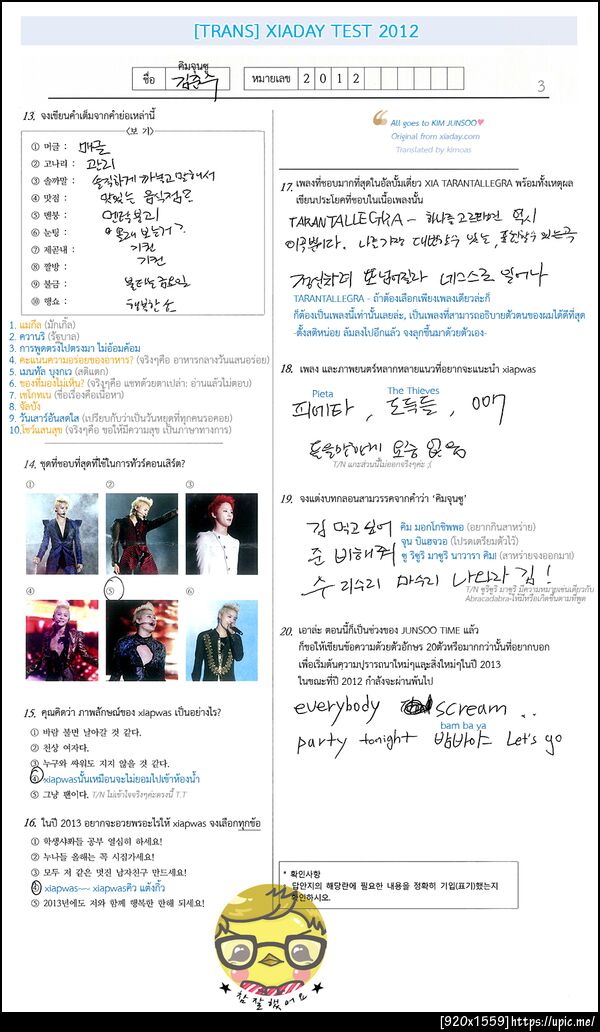 [TRANS] XIADAY TEST 2012
คิมจุนซู
ชื่อ 김준수 หมายเลข 2 0 1 2
3
13. จงเขียนคำเต็มจากคำย่อเหล่านี้
<보 기>
① 머글 : 매글
② 고나리 : 관리
③ 솔까말 : 솔직하게 까놓고 말해서
④ 맛점 : 맛있는 음식점?
⑤ 멘붕 : 멘탈붕괴
⑥ 눈팅 :
⑦ 제곧내 :
⑧ 짤방 :
⑨ 불금 : 불타는 금요일
⑩ 행쇼 : 행복한 쇼
1. แมกึล (มักเกิ้ล)
2. ควานรี (รัฐบาล)
3. การพูดตรงไปตรงมา ไม่อ้อมค้อม
4. คะแนนความอร่อยของอาหาร? (จริงๆคือ อาหารกลางวันแสนอร่อย)
5. เมนทัล บุงกเว (สติแตก)
6. ของที่มองไม่เห็น? (จริงๆคือ แชทด้วยตาเปล่า; อ่านแล้วไม่ตอบ)
7. เชโกทเน (ชื่อเรื่องคือเนื้อหา)
8. จัลบัง
9. วันเสาร์อันสดใส (เปรียบกับว่าเป็นวันหยุดที่ทุกคนรอคอย)
10.โชว์แสนสุข (จริงๆคือ ขอให้มีความสุข เป็นภาษาทางการ)
14. ชุดที่ชอบที่สุดที่ใช้ในการทัวร์คอนเสิร์ต?
① ② ③
④ ⑤ ⑥
15. คุณคิดว่า ภาพลักษณ์ของ xiapwas เป็นอย่างไร?
① 바람 불면 날아갈 것 같다.
② 천상 여자다.
③ 누구와 싸워도 지지 않을 것 같다.
④ xiapwasนั้นเหมือนจะไม่ยอมไปเข้าห้องน้ำ
⑤ 그냥 팬이다. T/N ไม่เข้าใจจริงๆค่ะตรงนี้ T.T
16. ในปี 2013 อยากจะอวยพรอะไรให้ xiapwas จงเลือกทุกข้อ
① 학생샤퐈들 공부 열심히 하세요!
② 누나들 올해는 꼭 시집가세요!
③ 모두 저 같은 멋진 남자친구 만드세요!
④ xiapwas~~ xiapwasคิว แต้งกิ้ว
⑤ 2013년에도 저와 함께 행복한 한해 되세요!
All goes to KIM JUNSOO♥
Original from xiaday.com
Translated by kimoas
17. เพลงที่ชอบมากที่สุดในอัลบั้มเดี่ยว XIA TARANTALLEGRA พร้อมทั้งเหตุผล
เขียนประโยคที่ชอบในเนื้อเพลงนั้น
TARANTALLEGRA - 하나를 고르라면 역시
이곡뿐이다. 나를 가장 대변할수 있는, 표현할수 있는곡
TARANTALLEGRA - ถ้าต้องเลือกเพียงเพลงเดียวล่ะก็
ก็ต้องเป็นเพลงนี้เท่านั้นเลยล่ะ, เป็นเพลงที่สามารถอธิบายตัวตนของผมได้ดีที่สุด
-ตั้งสติหน่อย ล้มลงไปอีกแล้ว จงลุกขึ้นมาด้วยตัวเอง-
18. เพลง และภาพยนตร์หลากหลายแนวที่อยากจะแนะนำ xiapwas
Pieta The Thieves
피에타 , 도둑들 , 007
T/N แกะส่วนนี้ไม่ออกจริงๆค่ะ ;(
19. จงแต่งบทกลอนสามวรรคจากคำว่า 'คิมจุนซู'
김 먹고 싶어 คิม มอกโกชิพพอ (อยากกินสาหร่าย)
준 비해줘 จุน บีแฮจวอ (โปรดเตรียมตัวไว้)
수 리수리 마수리 나와라 김! ซู รีซูรี มาซูรี นาวารา คิม! (สาหร่ายจงออกมา!)
T/N ซูรีซูรี มาซูรี มีความหมายเช่นเดียวกับ
Abracadabra-ให้มีหรือเกิดขึ้นตามที่พูด
20. เอาล่ะ ตอนนี้ก็เป็นช่วงของ JUNSOO TIME แล้ว
ก็ขอให้เขียนข้อความด้วยตัวอักษร 20ตัวหรือมากกว่านั้นที่อยากบอก
เพื่อเริ่มต้นความปรารถนาใหม่ๆและสิ่งใหม่ๆในปี 2013
ในขณะที่ปี 2012 กำลังจะผ่านพ้นไป
everybody scream ..
bam ba ya
party tonight 밤바야 Let's go
* 확인사항
답안지의 해당란에 필요한 내용을 정확히 기입(표기)했는지
확인하시오.
★ 참 잘했어요 ★
[920x1559]https://upic.me/